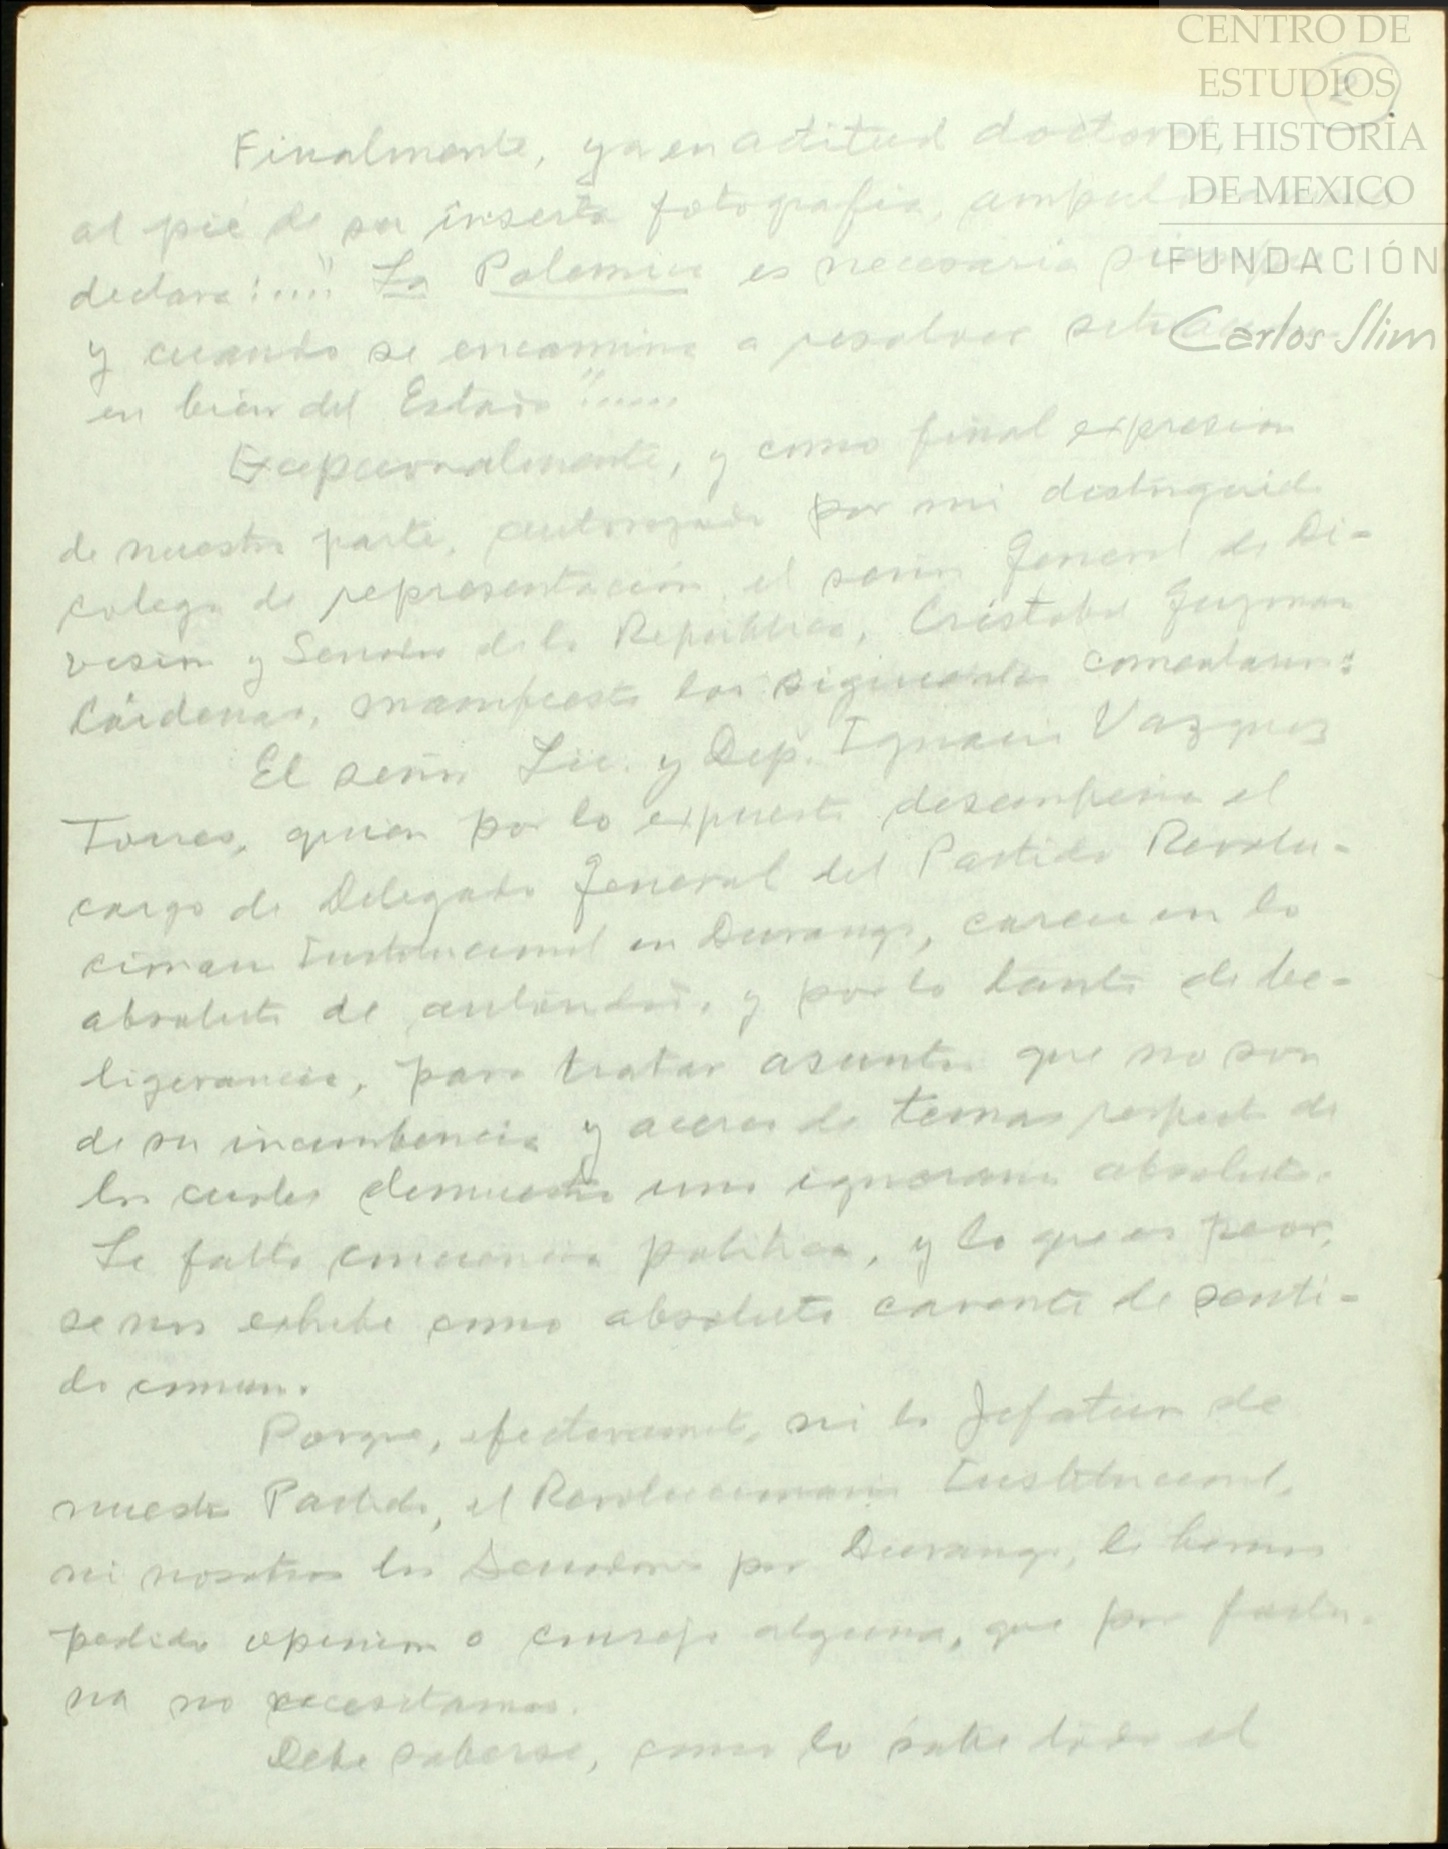 CENTRO DE
ESTUDIOS
DE HISTORIA
DE MEXICO
FUNDACIÓN
Carlos Slim
2
Finalmente, ya en actitud doctoral,
al pié de su inserta fotografia,
declara:...." La Polemica es necesaria siempre
y cuando se encamine a resolver
en bien del Estado".....
Excepcionalmente, y como final expresion
de nuestra parte, autorizado por mi distinguido
colega de representación, el señor General de Di-
vision y Senador de la Republica, Cristobal Guzman
Cárdenas, manifiesto los siguientes comentarios:
El señor Lic. y Dip. Ignacio Vazquez
Torres, quien por lo expuesto desempeña el
cargo de Delegado General del Partido Revolu-
cionario Institucional en Durango, carece en lo
absoluto de autoridad, y por lo tanto de be-
ligerancia, para tratar asuntos que no son
de su incumbencia y acerca de temas respecto de
los cuales demuestra una ignorancia absoluta.
Le falta conciencia politica, y lo que es peor,
se nos exhibe como absoluto carente de senti-
do comun.
Porque, efectivamente, ni la Jefatura de
nuestro Partido, el Revolucionario Institucional,
ni nosotros los Senadores por Durango, le hemos
pedido opinion o consejo alguno, que por fortu-
na no necesitamos.
Debe saberse, como lo sabe todo el